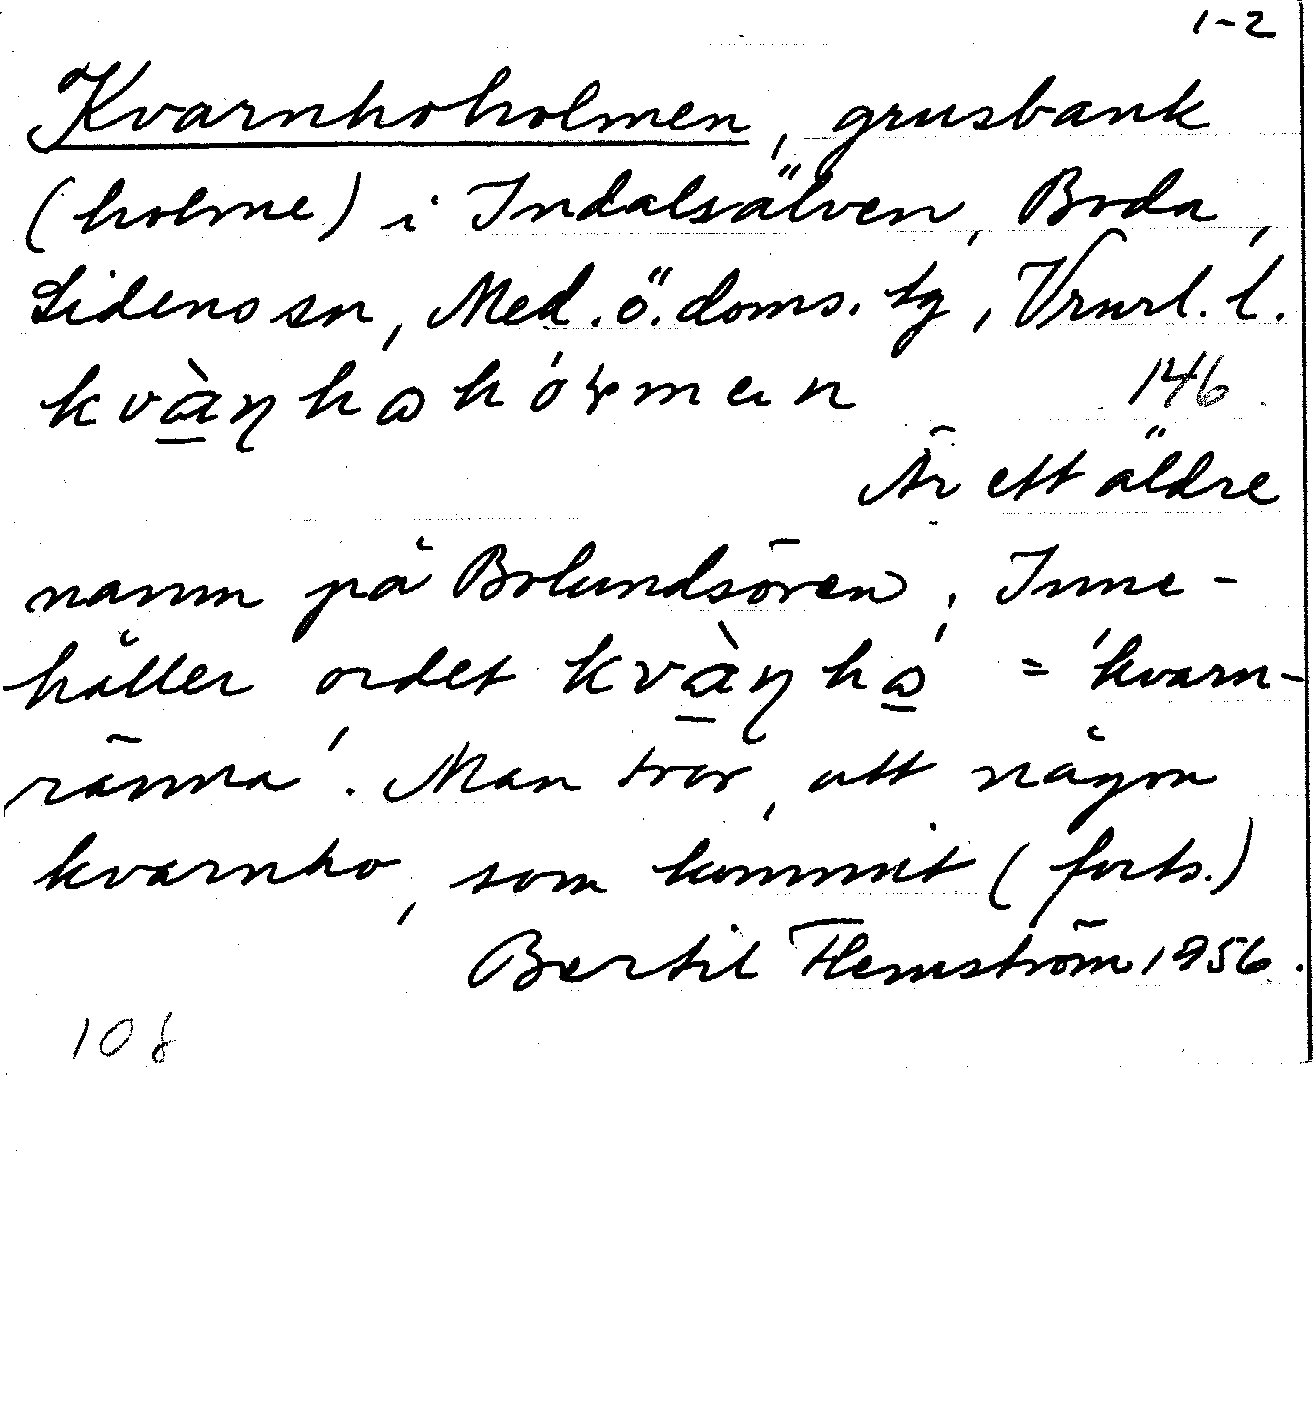 1-2
Kvarnhoholmen, grusbank
(holme) i Indalsälven, Boda,
Lidens sn, Med. ö. doms. tg, Vnrl. l.
146
Är ett äldre
namn på Bolundsören. Inne-
håller ordet = 'kvarn-
ränna'. Man tror, att någon
kvarnho, som kommit (forts.)
Bertil Flemström 1956.
108